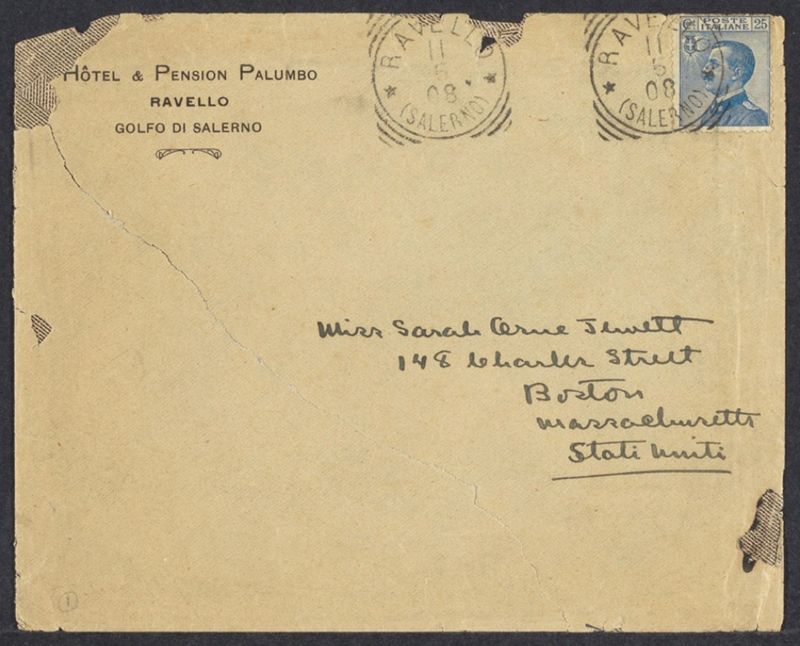 HÔTEL & PENSION PALUMBO
RAVELLO
GOLFO DI SALERNO
RAVELLO
11
5
08
(SALERNO)
RAVELLO
11
5
08
(SALERNO)
POSTE
ITALIANE
25
Miss Sarah Orne Jewett
148 Charles Street
Boston
Massachusetts
Stati Uniti
1